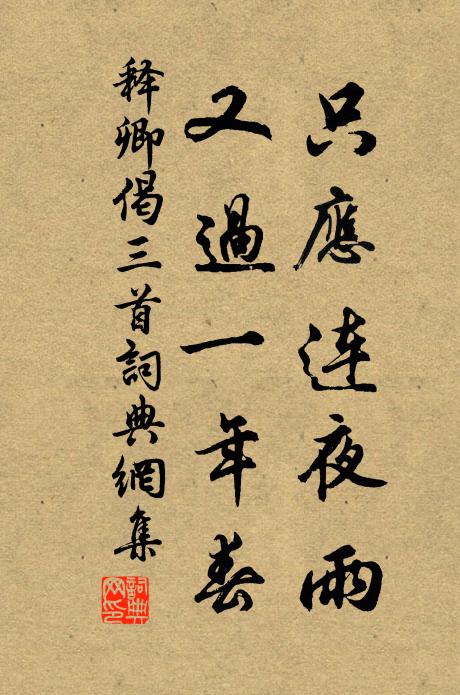 只應連夜雨
又過一年春
释卿偈三首詞典網集
詞典網印